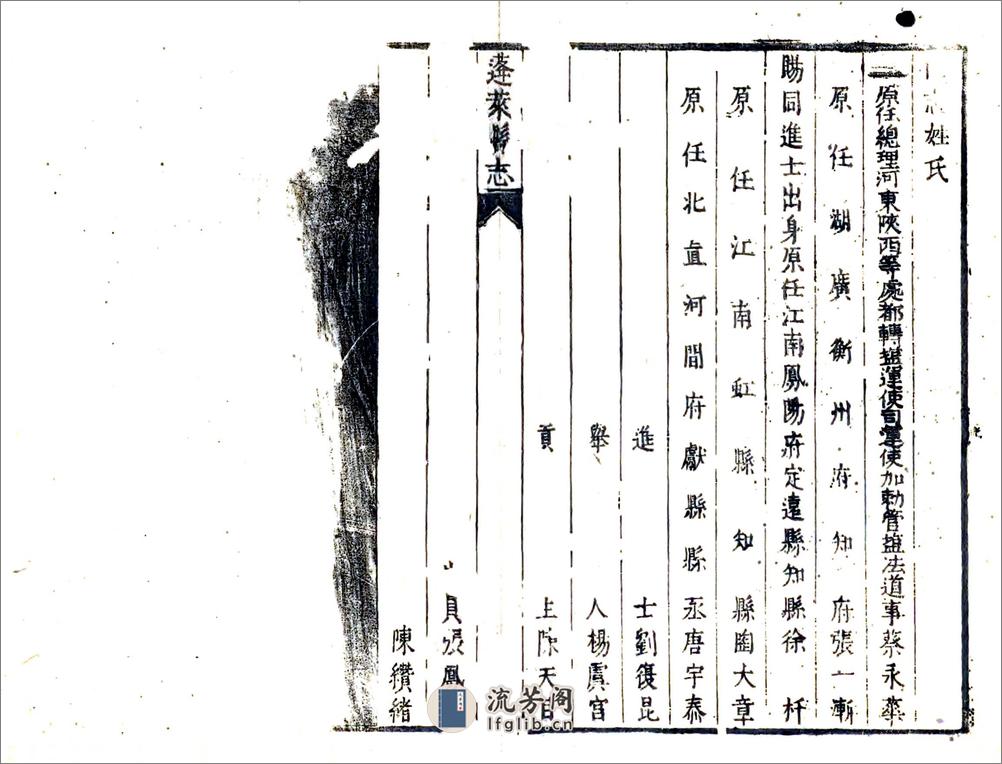 姓氏
原任總理河東陝西等處都轉鹽運使司運使加勅管鹽法道事蔡永華
原任湖廣衡州府知府張一漸
賜同進士出身原任江南鳳陽府定遠縣知縣徐杆
原任江南虹縣知縣陶大章
原任北直河間府獻縣縣丞唐宇泰
進士劉復昆
舉人楊虞宮
貢士陳天
蓬萊縣志
員張鳳
陳纘緒
流芳阁
lfglib.cn